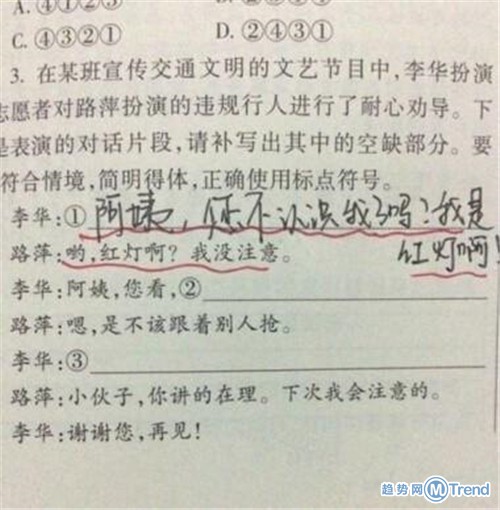 A.④①②③
C.④③②① D.②④③①
3. 在某班宣传交通文明的文艺节目中,李华扮演
志愿者对路萍扮演的违规行人进行了耐心劝导。下
是表演的对话片段,请补写出其中的空缺部分。要
符合情境,简明得体,正确使用标点符号。
李华:①阿姨,您不认识我了吗?我是
红灯啊!
路萍:哟,红灯啊?我没注意。
李华:阿姨,您看,②
路萍:嗯,是不该跟着别人抢。
李华:③
路萍:小伙子,你讲的在理。下次我会注意的。
李华:谢谢您,再见!
趋势网 Trend